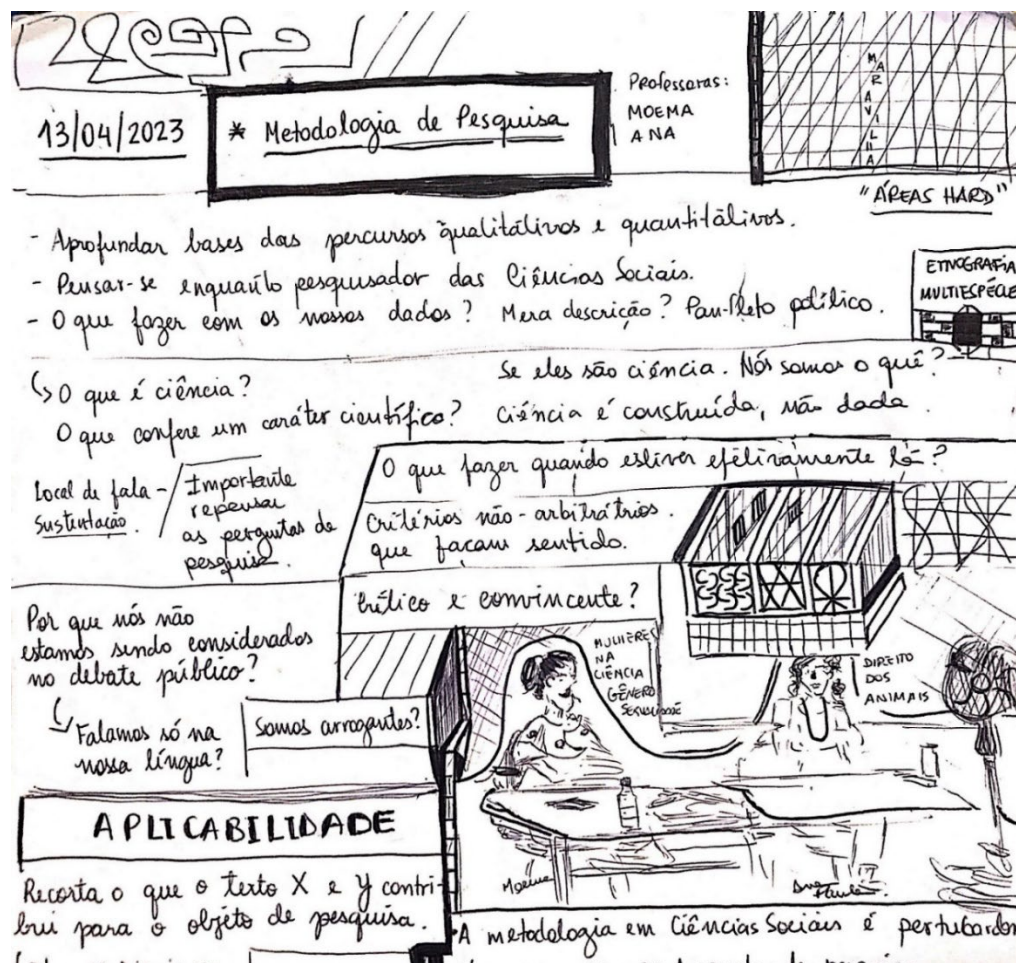 13/04/2023
* Metodologia de Pesquisa
Professoras:
MOEMA
ANA
MARAVILHA
"ÁREAS HARD"
- Aprofundar bases das percursos qualitátivos e quantitátivos.
- Pensar-se enquanto pesquisador das Ciências Sociais.
- O que fazer com os nossos dados? Mera descrição? Pan-fleto político.
ETNOGRAFIA
MULTIESPÉCIE
↳ O que é ciência?
O que confere um caráter científico?
Se eles são ciência. Nós somos o quê?
Ciência é construída, não dada.
Local de fala -
Sustentação.
Importante
repensar
as perguntas de
pesquisa.
O que fazer quando estiver efetivamente lá?
Critérios não-arbitrátrios.
que façam sentido.
crético e convincente?
Por que nós não
estamos sendo considerados
no debate público?
↳ Falamos só na
nossa língua?
Somos arrogantes?
MULHERES
NA
CIÊNCIA
GÊNERO
SEXUALIDADE
DIREITO
DOS
ANIMAIS
Moema
Ana
Paula
APLICABILIDADE
Recorta o que o texto X e Y contri-
bui para o objeto de pesquisa.
A metodologia em Ciências Sociais é pertubardor